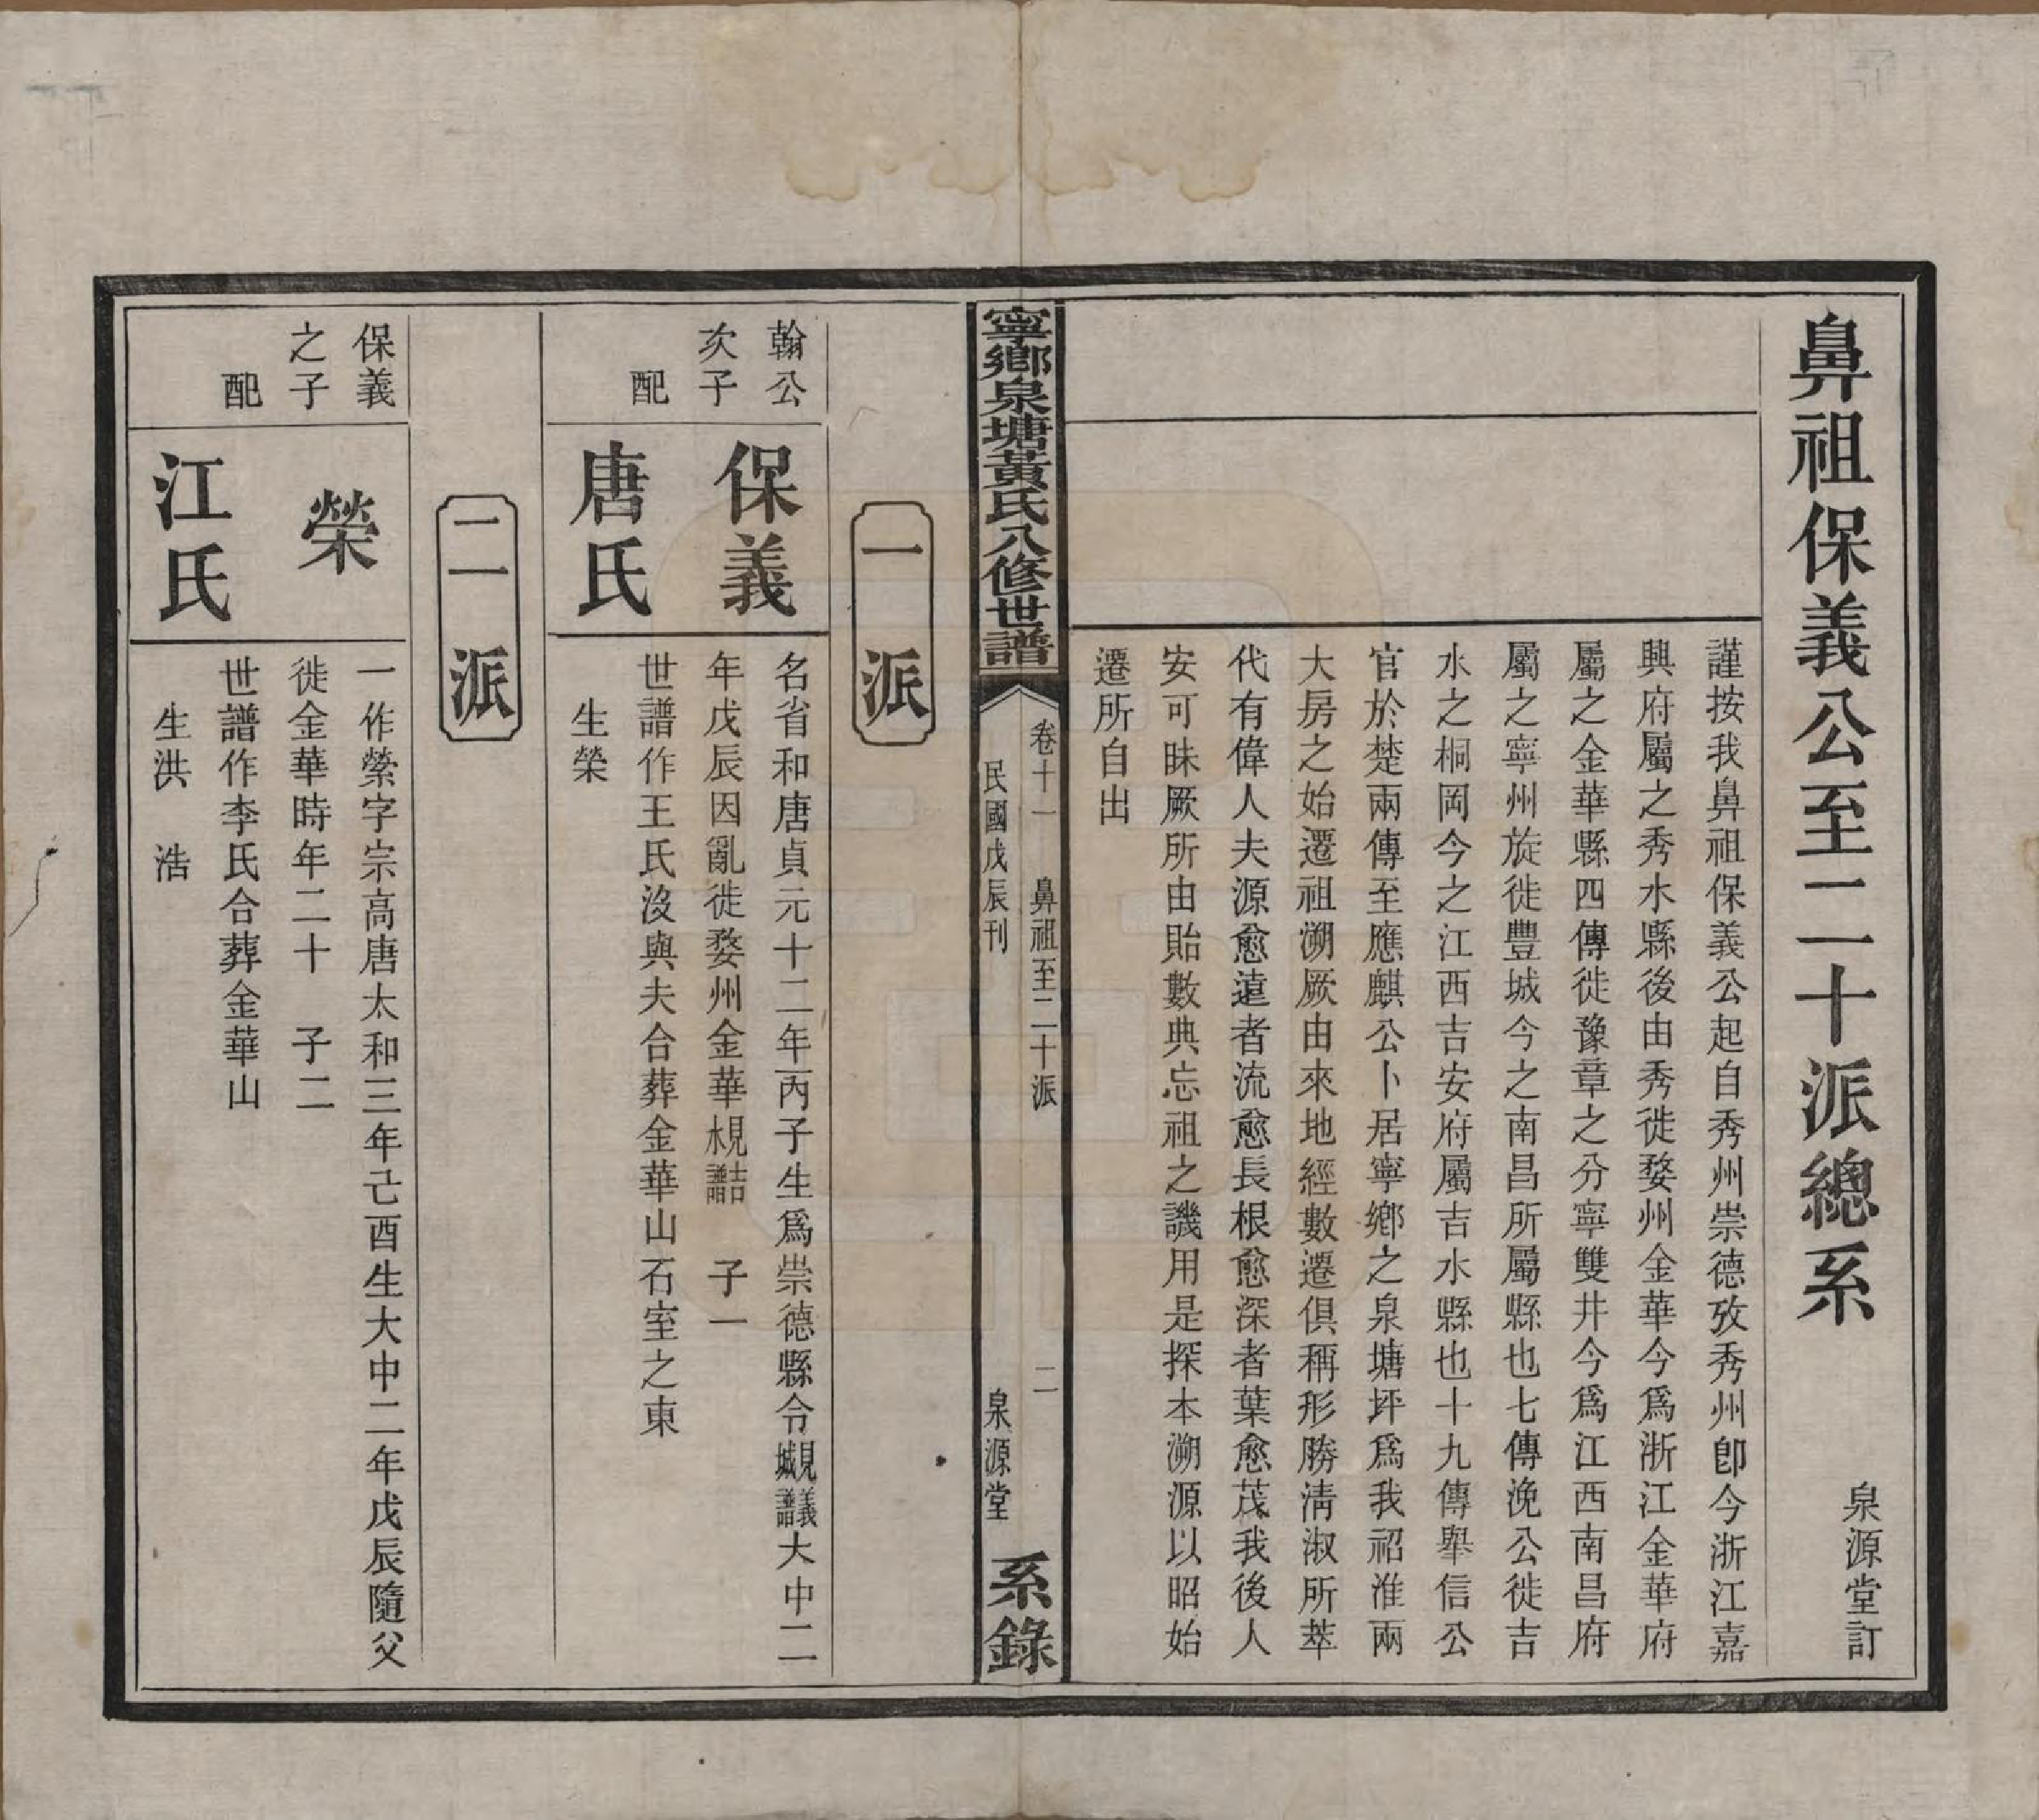 鼻祖保義公至二十派總系
泉源堂訂
謹按我鼻祖保義公起自秀州崇德攷秀州卽今浙江嘉
興府屬之秀水縣後由秀徙婺州金華今爲浙江金華府
屬之金華縣四傳徙豫章之分寧雙井今爲江西南昌府
屬之寧州旋徙豐城今之南昌所屬縣也七傳浼公徙吉
水之桐岡今之江西吉安府屬吉水縣也十九傳舉信公
官於楚兩傳至應麒公卜居寧鄉之泉塘坪爲我祒淮兩
大房之始遷祖溯厥由來地經數遷俱稱形勝淸淑所萃
代有偉人夫源愈遠者流愈長根愈深者葉愈茂我後人
安可昧厥所由貽數典忘祖之譏用是探本溯源以昭始
遷所自出
寧鄉泉塘黃氏八修世譜
卷十一　鼻祖至二十派　二
民國戊辰刊　泉源堂
系錄
一派
翰公
次子
保義
名省和唐貞元十二年丙子生爲崇德縣令見義城譜大中二
年戊辰因亂徙婺州金華見吉水譜　子一
配
唐氏
世譜作王氏沒與夫合葬金華山石室之東
生榮
二派
保義
之子
榮
一作縈字宗高唐太和三年己酉生大中二年戊辰隨父
徙金華時年二十　子二
配
江氏
世譜作李氏合葬金華山
生洪　浩